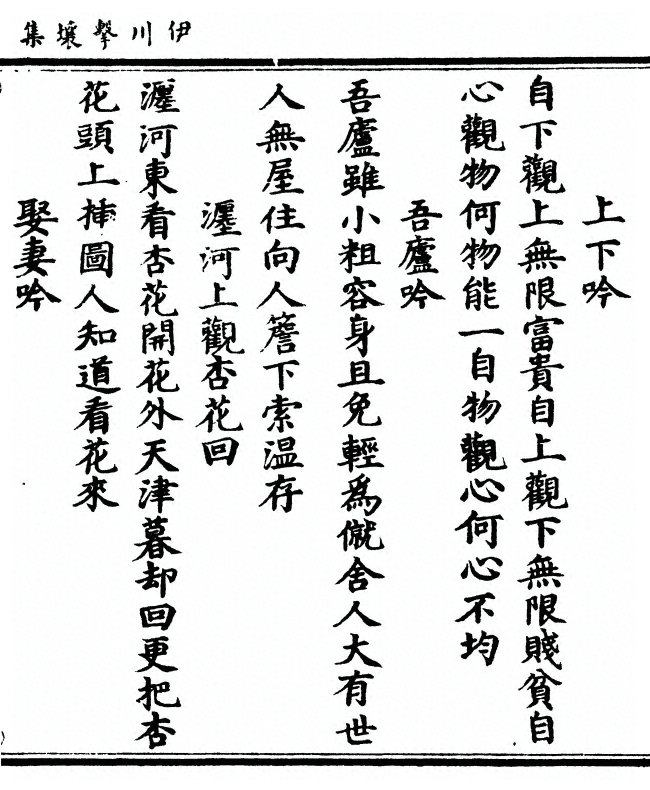 伊川擊壤集
上下吟
自下觀上無限富貴自上觀下無限賤貧自
心觀物何物能一自物觀心何心不均
吾廬吟
吾廬雖小粗容身且免輕為僦舍人大有世
人無屋住向人簷下索温存
瀍河上觀杏花回
瀍河東看杏花開花外天津暮却回更把杏
花頭上揷圖人知道看花來
娶妻吟